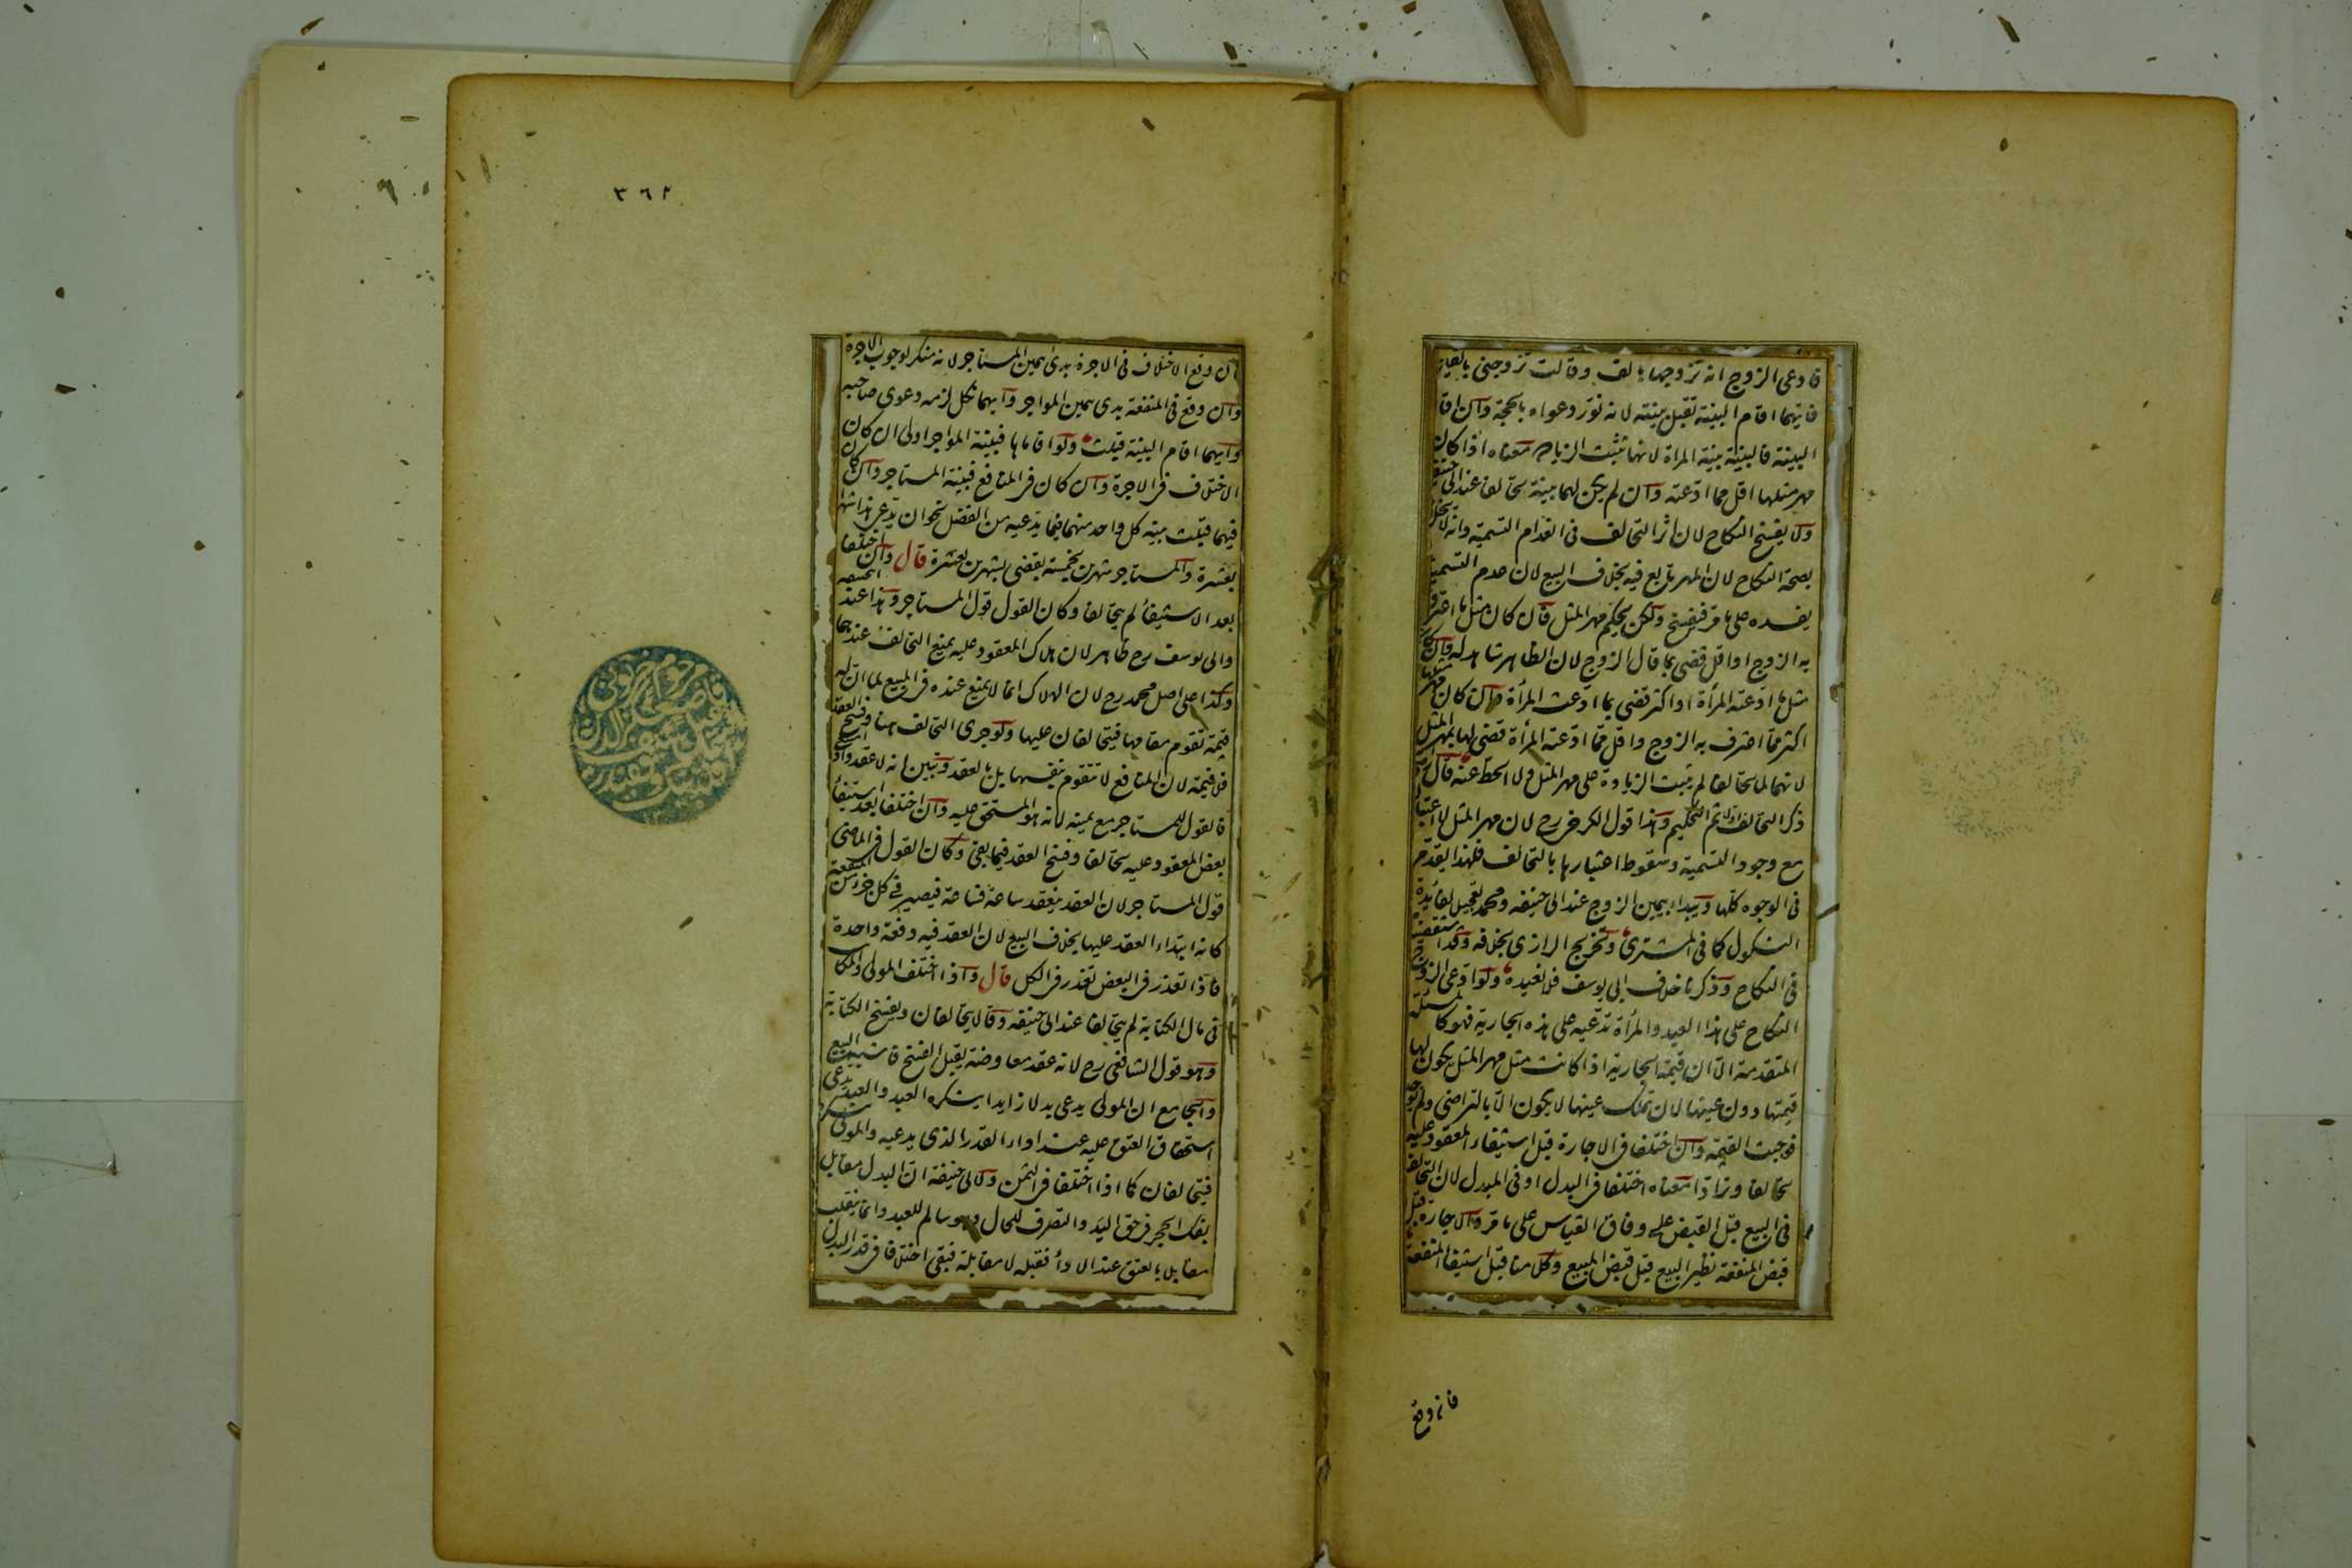 فادعى الزوج انه تزوجها بالف وقالت تزوجنى بالفين
فايهما اقام البينة تقبل بينته لانه نور دعواه بالحجة وان اقاما
البينة فالبينة بينة المرأة لانها تثبت الزيادة معناه اذا كان
مهر مثلها اقل مما ادعته وان لم يكن لهما بينة تحالفا عند ابى حنيفة
ولا يفسخ النكاح لان اثر التحالف فى انعدام التسمية وانه لا يخل
بصحة النكاح لان المهر تابع فيه بخلاف البيع لان عدم التسمية
يفسده على ما مر فيفسخ ولكن يحكم مهر المثل فان كان مثل ما اعترف
به الزوج او اقل قضى بما قال الزوج لان الظاهر شاهد له وان كان
مثل ما ادعته المرأة او اكثر قضى بما ادعته المرأة وان كان مهر مثلها
اكثر مما اعترف به الزوج واقل مما ادعته المرأة قضى لها بمهر المثل
لانهما لما تحالفا لم يثبت الزيادة على مهر المثل ولا الحط عنه قال
ذكر التحالف اولا ثم التحكيم وهذا قول الكرخى رح لان مهر المثل لا اعتبار
مع وجود التسمية وسقوط اعتبارها بالتحالف فلهذا يقدم
فى الوجوه كلها ويبداء بيمين الزوج عند ابى حنيفه ومحمد تعجيلا لفائدة
النكول كما فى المشترى وتخريج الرازى بخلافه وقد استقصيناه
فى النكاح وذكرنا خلاف ابى يوسف فلا نعيده ولو ادعى الزوج
النكاح على هذا العبد والمرأة تدعيه على هذه الجارية فهو كالمسئلة
المتقدمة الا ان قيمة الجارية اذا كانت مثل مهر المثل يكون لها
قيمتها دون عينها لان تملك عينها لا يكون الا بالتراضى ولم يوجد
فوجبت القيمة وان اختلفا فى الاجارة قبل استيفاء المعقود عليه
تحالفا وترادا معناه اختلفا فى البدل او فى المبدل لان التحالف
فى البيع قبل القبض على وفاق القياس على ما مر والاجارة قبل
قبض المنفعة نظير البيع قبل قبض المبيع وكلامنا قبل استيفاء المنفعة
فان وقع
٣٦٢
فان وقع الاختلاف فى الاجرة يبدئ بيمين المستاجر لانه منكر لوجوب الاجرة
وان وقع فى المنفعة بدى بيمين المواجر وايهما نكل لزمه دعوى صاحبه
وايهما اقام البينة قبلت ولو اقاماها فبينة المواجر اولى ان كان
الاختلاف فى الاجرة وان كان فى المنافع فبينة المستاجر وان كان
فيهما قبلت بينة كل واحد منهما فيما يدعيه من الفضل نحو ان يدعى هذا شهرا
بعشرة والمستاجر شهرين بخمسة يقضى بشهرين بعشرة قال وان اختلفا
بعد الاستيفاء لم يتحالفا وكان القول قول المستاجر وهذا عند ابى حنيفه
وابى يوسف رح ظاهر لان هلاك المعقود عليه يمنع التحالف عندهما
وكذا على اصل محمد رح لان الهلاك انما لا يمنع عنده فى المبيع لما ان له
قيمة تقوم مقامها فيتحالفان عليها ولو جرى التحالف هنا وفسخ العقد
فلا قيمة لان المنافع لا تتقوم بنفسها بل بالعقد وتبين انه لا عقد واذا امتنع
فالقول للمستاجر مع يمينه لانه هو المستحق عليه وان اختلفا بعد استيفاء
بعض المعقود عليه تحالفا وفسخ العقد فيما بقى وكان القول فى الماضى
قول المستاجر لان العقد ينعقد ساعة فساعة فيصير فى كل جزء من المنفعة
كانه ابتداء العقد عليها بخلاف البيع لان العقد فيه دفعة واحدة
فاذا تعذر فى البعض تعذر فى الكل قال واذا اختلف المولى والمكاتب
فى مال الكتابة لم يتحالفا عند ابى حنيفه وقالا يتحالفان ويفسخ الكتابة
وهو قول الشافعى رح لانه عقد معاوضة يقبل الفسخ فاشبه البيع
والجامع ان المولى يدعى بدلا زايدا ينكره العبد والعبد يدعى
استحقاق العتق عليه عند اداء القدر الذى يدعيه والمولى ينكر
فيتحالفان كما اذا اختلفا فى الثمن ولابى حنيفة ان البدل مقابل
بفك الحجر فى حق اليد والتصرف للحال وهو سالم للعبد وانما ينقلب
مقابلا بالعتق عند الاداء فقبله لا مقابلة فبقى اختلافا فى قدر البدل